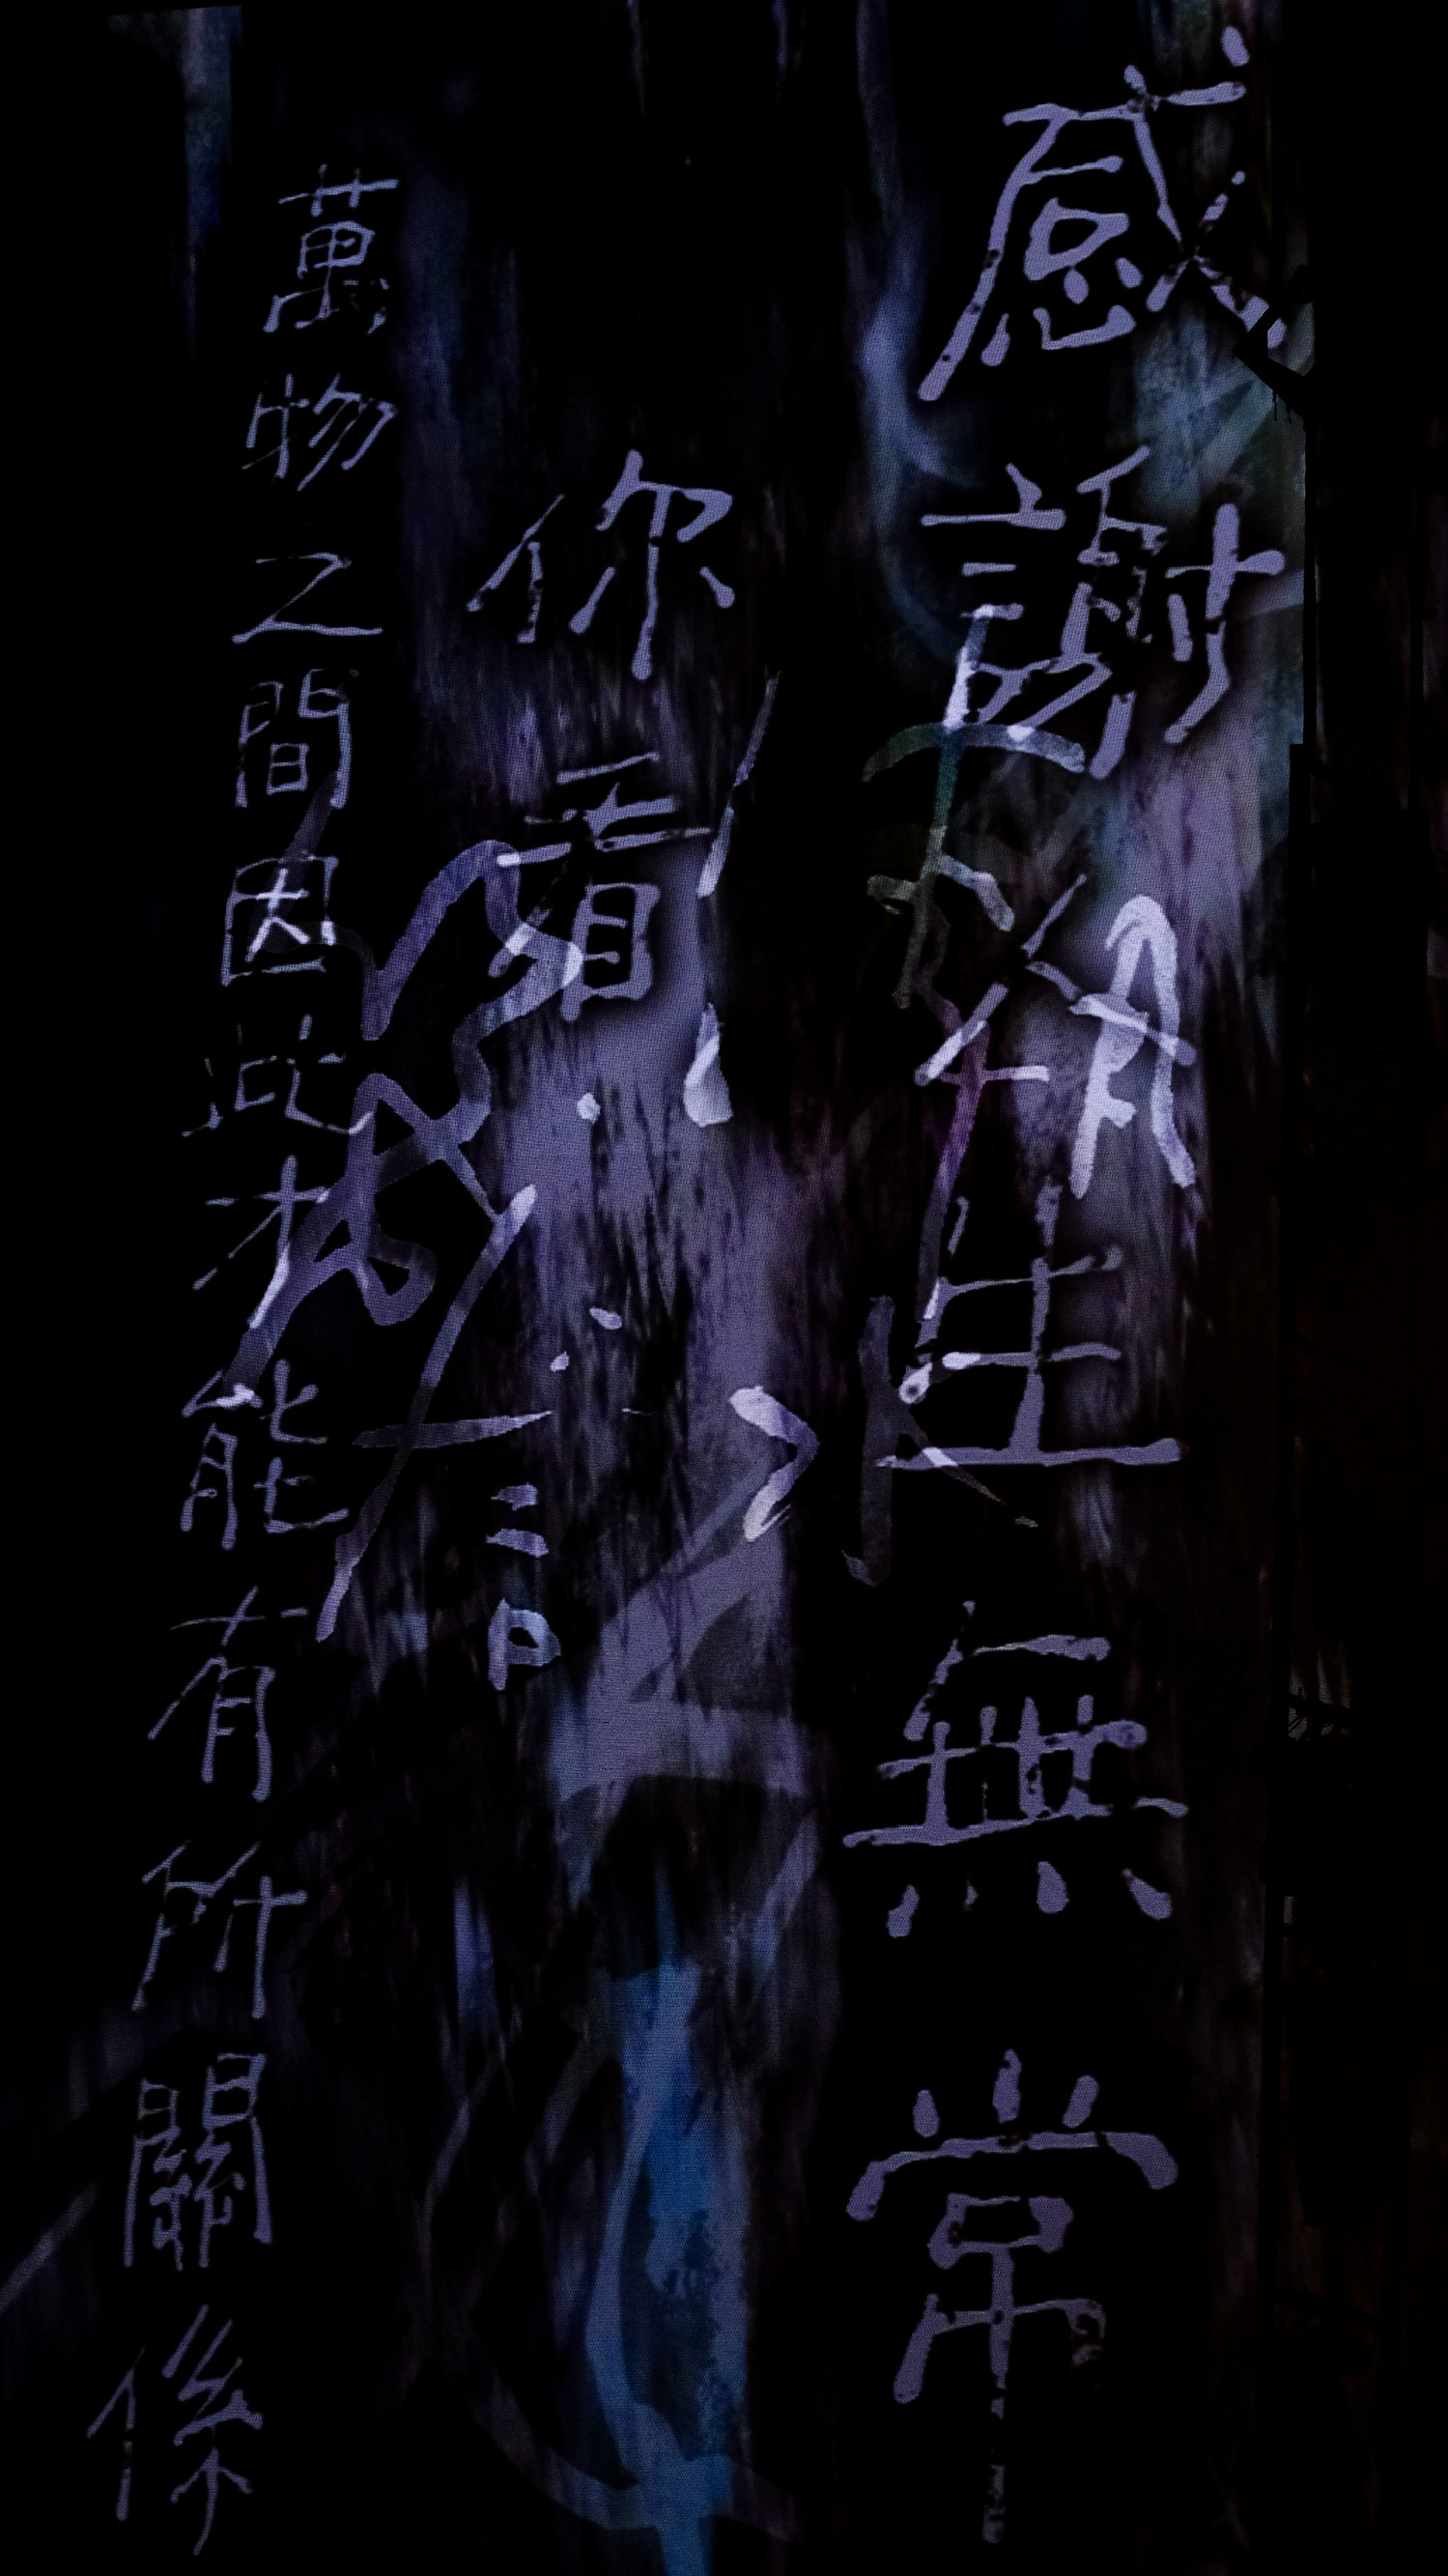 感謝生無常
你看
萬物之間因此才能有所關係